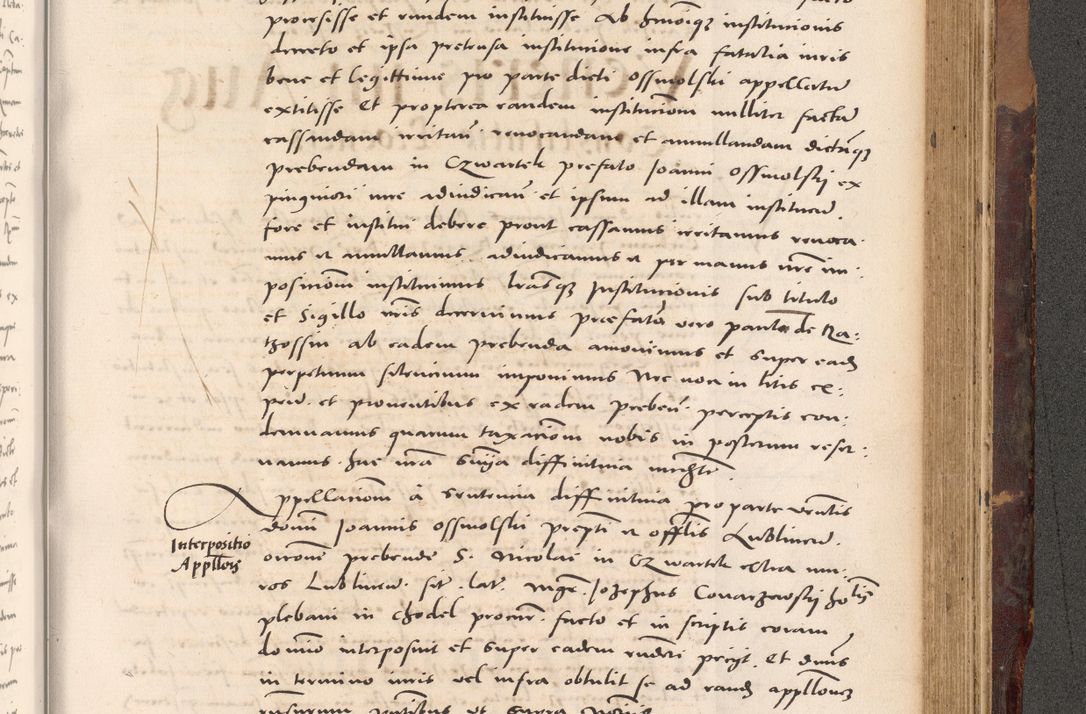 processisse et eandem instituisse Ab hmoiq̃ institucionis
decreto et ipsa pretensa institucione infra fatalia iuris
bene et legittime pro parte dicti Ossmolski appellatũ
extitisse Et propterea eandem instituciom nulliter factã
cassandam irritan̄. reuocandam et annullandam dictãq
prebendam in Czwartek prefato Joanni Ossmolskj ex
pinguiori iure adiudican̄. et ipsum ad illam instituend.
fore et institui debere prout cassamus irritamus reuoca.
mus et annullamus. adiudicamus et per manus nr̄e im:
posiciom instituimus lrasq̃ Institucionis sub titulo
et Sigillo nr̄is decernimus Præfatũ vero Paulũ de Ra:
thossin ab eadem prebenda amouimus et super eadẽ
perpetuum silencium imponimus Nec non in litis ex:
pen̄. et prouentibus ex eadem preben̄. perceptis con:
demnamus quarum taxaciom nobis in posterum reser:
uamus. hac nr̄a sn̄ia diffinitiua mediañ
Appellaciom à Sentencia diffinitiua pro parte ven̄lis
domi Joannis Ossmolski prepti et offlis Lublinen̄.
Interpositio
Appllois
occone prebende S. Nicolai in Czwartek extra mu:
ros Lublinen̄. sit. lat. Mgr̄. Josephus Conarzewskij
plebani in Chodel procur̄. facto et in scriptis coram
domino interposuit et super eadem ruderi pecyt. Et dnus
in termino iuris vel infra obtulit se ad eandẽ appllonẽ